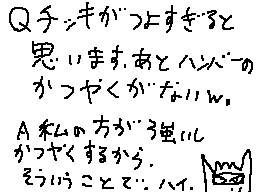 Qチッキがつよすぎると
思います。あとハンバーの
かつやくがないw。
A 私の方が強いし
かつやくするから。
そういうことで。ハイ。